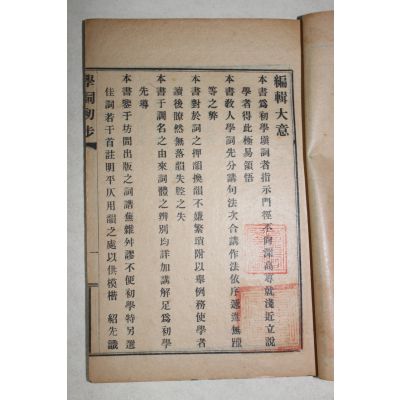 編輯大意
本書爲初學塡詞者指示門徑不向深高專就淺近立說
學者得此極易領悟
本書教人學詞先分講句法次合講作法依序遞進無躐
等之弊
本書對於詞之押韻換韻不嫌繁瑣附以舉例務使學者
讀後瞭然無落韻失腔之失
本書于調名之由來詞體之辨別均詳加講解足爲初學
先導
本書鑒于坊間出版之詞譜蕪雜舛謬不便初學特另選
佳詞若干首註明平仄用韻之處以供模楷　紹先識
學詞初步
一